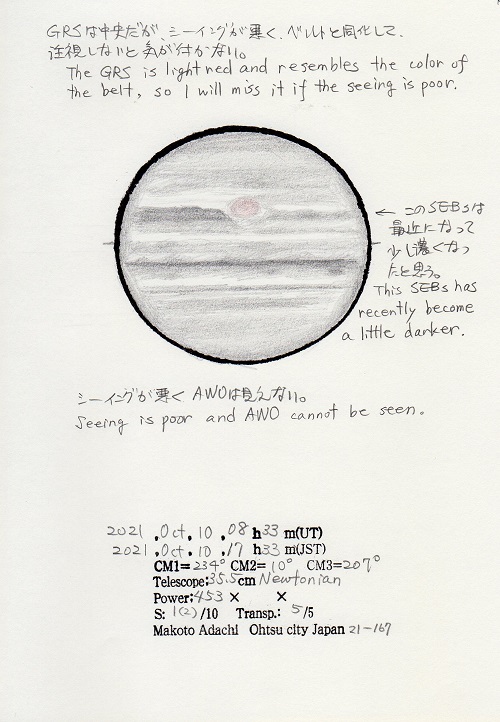 GRSは中央だが、シーイングが悪く、ベルトと同化して、
注視しないと気が付かない。
The GRS is light red and resembles the color of
the belt, so I will miss it if the seeing is poor.
← このSEBsは
最近になって
少し濃くなっ
たと思う。
This SEBs has
recently become
a little darker.
シーイングが悪く AWOは見えない。
Seeing is poor and AWO cannot be seen.
2021 .Oct. 10 .08 h33 m(UT)
2021 .Oct. 10 .17 h33 m(JST)
CM1=234° CM2= 10° CM3=207°
Telescope:35.5cm Newtonian
Power:453 × ×
S: 1(2)/10 Transp.: 5/5
Makoto Adachi Ohtsu city Japan 21-167